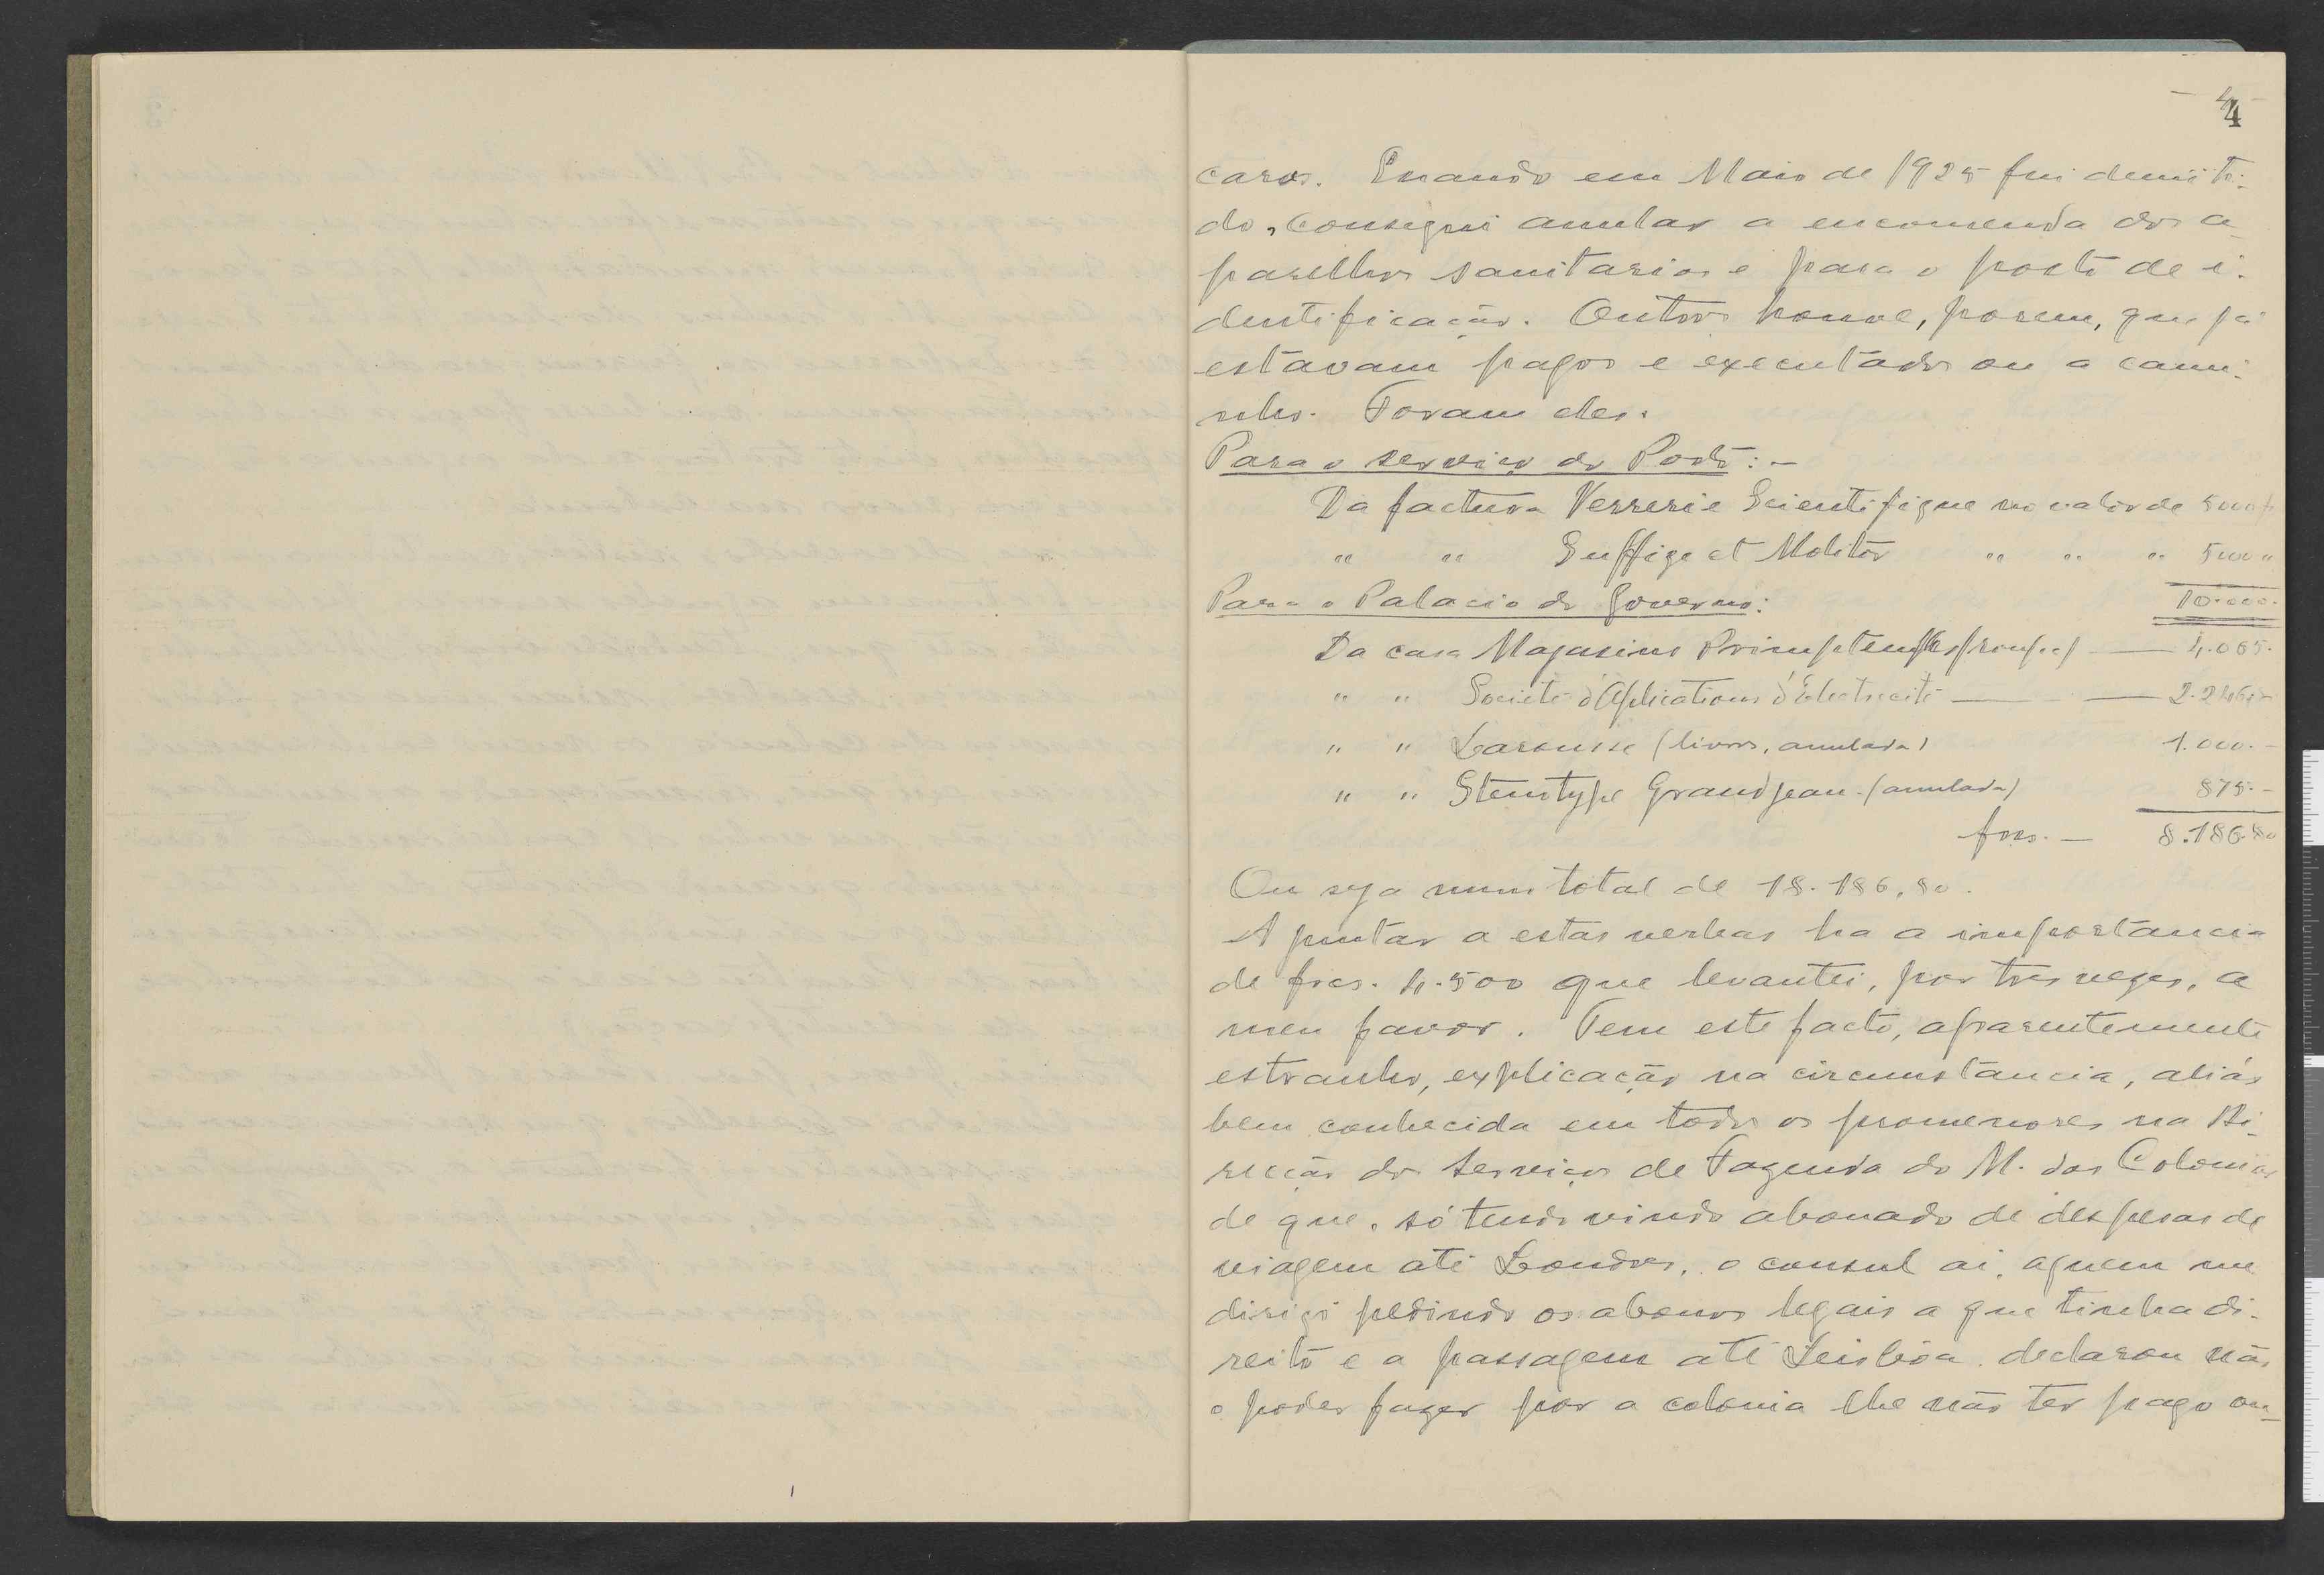 4
caros. Quando em Maio de 1925 fui demiti-
do, consegui anular a encomenda dos a-
parelhos sanitarios e para o posto de i-
dentificação. Outros houve, porem, que já
estavam pagos e executados ou a cami-
nho. Foram eles:
Para o serviço do Porto: -
Da factura Verrerie Scientifique no valor de 5000 f
" " et Molitor " " " 5000 "
Para o Palacio do Governo: 10.000.
Da casa Magasins Primptemps (roupas) — 4.065.
" " Societé d'Aplications d'Electrecité — 2.246,80
" " Larousse (livros, anulada) 1.000. -
" " Stenotype Grandjean - (anulada) 875. -
frcs. — 8.186.80
Ou seja num total de 18.186,80.
A juntar a estas verbas ha a importancia
de frcs. 4.500 que levantei, por tres vezes, a
meu favor. Tem este facto, aparentemente
estranho, explicação na circumstancia, aliás
bem conhecida em todos os promenores na Di-
recção dos Serviços de Fazenda do M. das Colonias
de que, só tendo vindo abonado de despesas de
viagem até Londres, o consul ai, a quem me
dirigi pedindo os abonos legais a que tinha di-
reito e a passagem até Leisbôa declarou não
o poder fazer por a colonia lhe não ter pago ou-